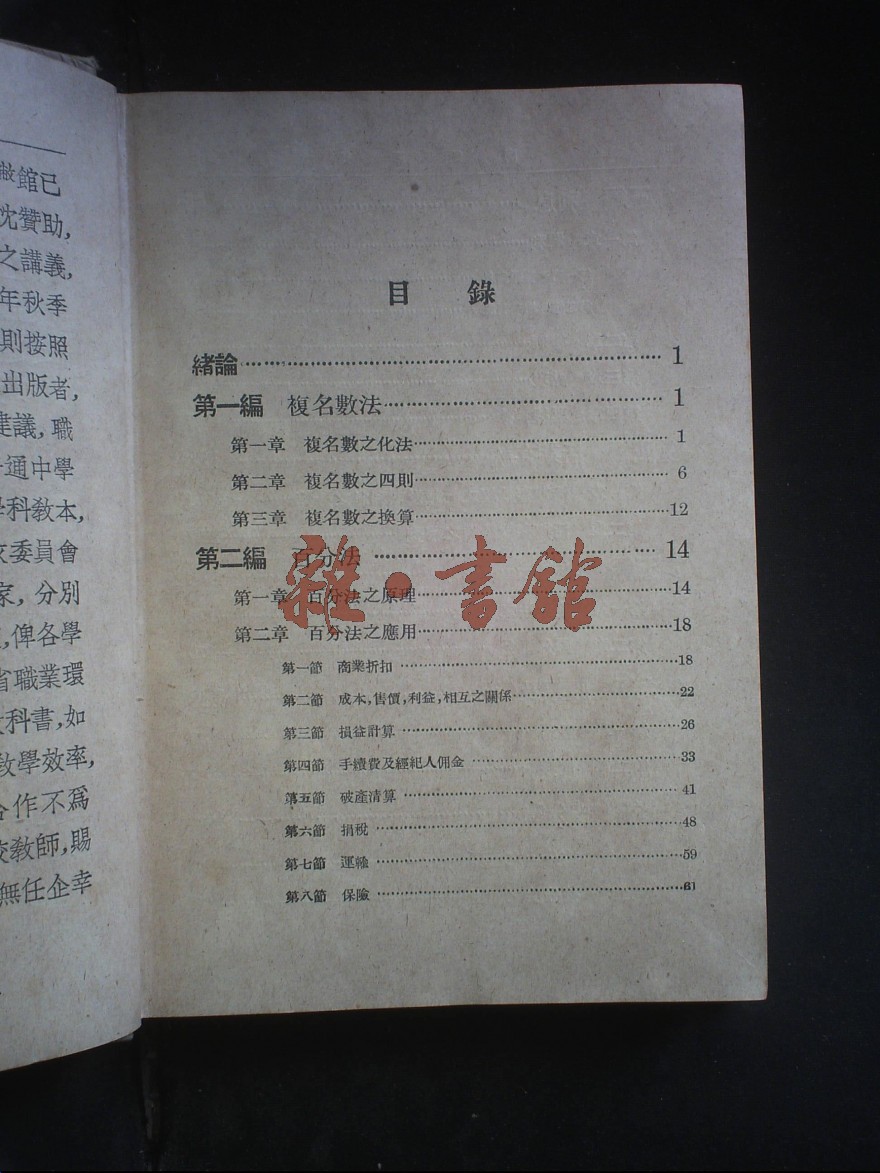 敝館已
沈贊助,
之講義,
年秋季
則按照
出版者,
建議,職
通中學
學科敎本,
委員會
家,分別
,俾各學
省職業環
科書,如
敎學效率,
合作不爲
校敎師,賜
無任企幸
目 錄
緒論 1
第一編 複名數法 1
第一章 複名數之化法 1
第二章 複名數之四則 6
第三章 複名數之換算 12
第二編 百分法 14
第一章 百分法之原理 14
第二章 百分法之應用 18
第一節 商業折扣 18
第二節 成本,售價,利益,相互之關係 22
第三節 損益計算 26
第四節 手續費及經紀人佣金 33
第五節 破產淸算 41
第六節 捐稅 48
第七節 運輸 59
第八節 保險 61
雜·書館